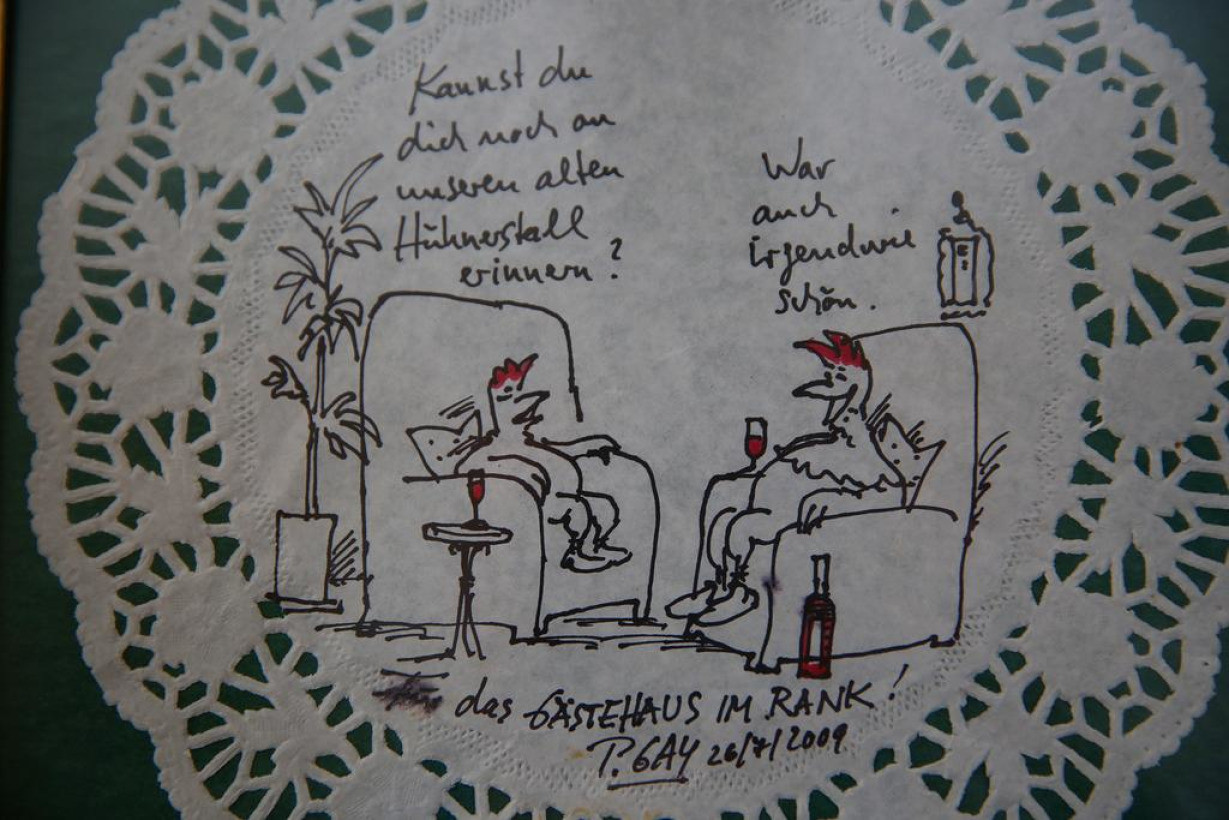 Kannst du
dich noch an
unseren alten
Hühnerstall
erinnern?
War
auch
irgendwie
schön.
das GÄSTEHAUS IM RANK!
P. GAY 26/7/2009